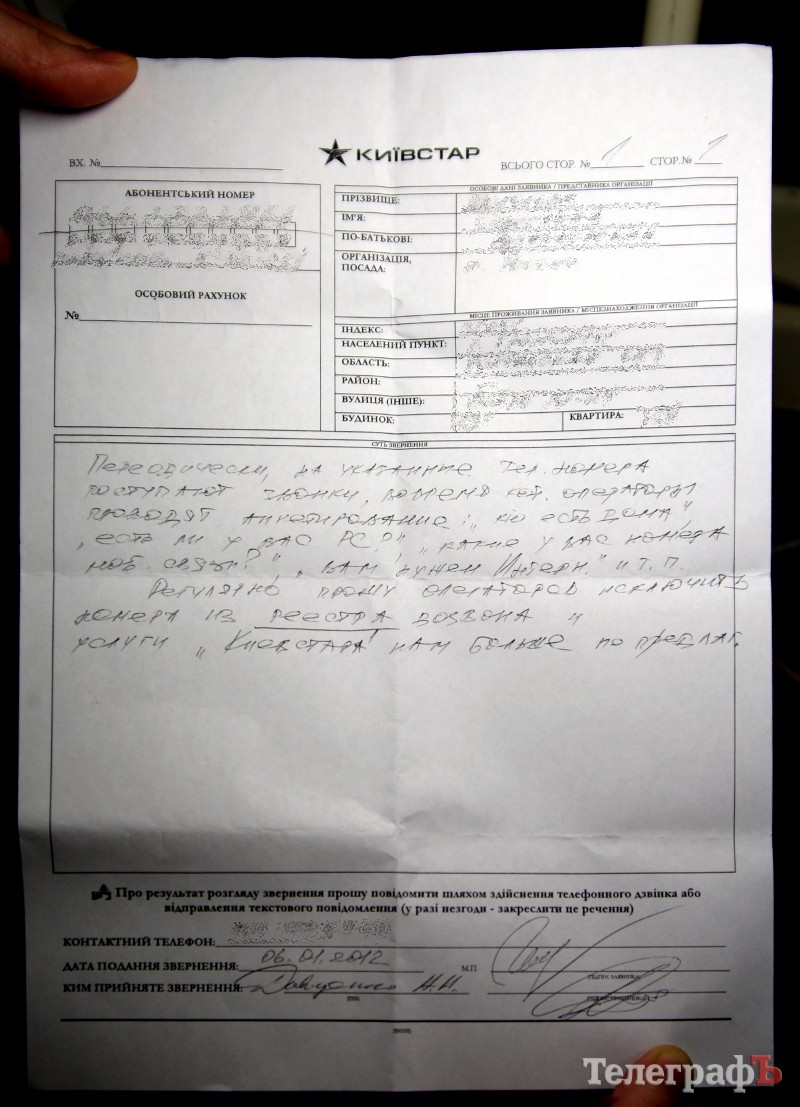 КИЇВСТАР
ВХ. №
ВСЬОГО СТОР. № 1 СТОР.№ 1
АБОНЕНТСЬКИЙ НОМЕР
ОСОБОВИЙ РАХУНОК
№
ОСОБОВІ ДАНІ ЗАЯВНИКА / ПРЕДСТАВНИКА ОРГАНІЗАЦІЇ
ПРІЗВИЩЕ:
ІМ'Я:
ПО-БАТЬКОВІ:
ОРГАНІЗАЦІЯ,
ПОСАДА:
МІСЦЕ ПРОЖИВАННЯ ЗАЯВНИКА / МІСЦЕЗНАХОДЖЕННЯ ОРГАНІЗАЦІЇ
ІНДЕКС:
НАСЕЛЕНИЙ ПУНКТ:
ОБЛАСТЬ:
РАЙОН:
ВУЛИЦЯ (ІНШЕ):
БУДИНОК: КВАРТИРА:
СУТЬ ЗВЕРНЕННЯ
Переодически, на указанные тел. номера
поступают звонки, во время кот. операторы
проводят анкетирование: „кто есть дома",
„есть ли у вас PC?" „какие у вас номера
моб. связи?", „вам нужен Интерн." и т.п.
Регулярно прошу операторов исключить
номера из реестра дозвона и
услуги „Киевстара" нам больше не предлаг.
Про результат розгляду звернення прошу повідомити шляхом здійснення телефонного дзвінка або
відправлення текстового повідомлення (у разі незгоди - закреслити це речення)
КОНТАКТНИЙ ТЕЛЕФОН:
ДАТА ПОДАННЯ ЗВЕРНЕННЯ: 06.01.2012 М.П.
ПІДПИС ЗАЯВНИКА
КИМ ПРИЙНЯТЕ ЗВЕРНЕННЯ: Н.И.
ТелеграфЪ